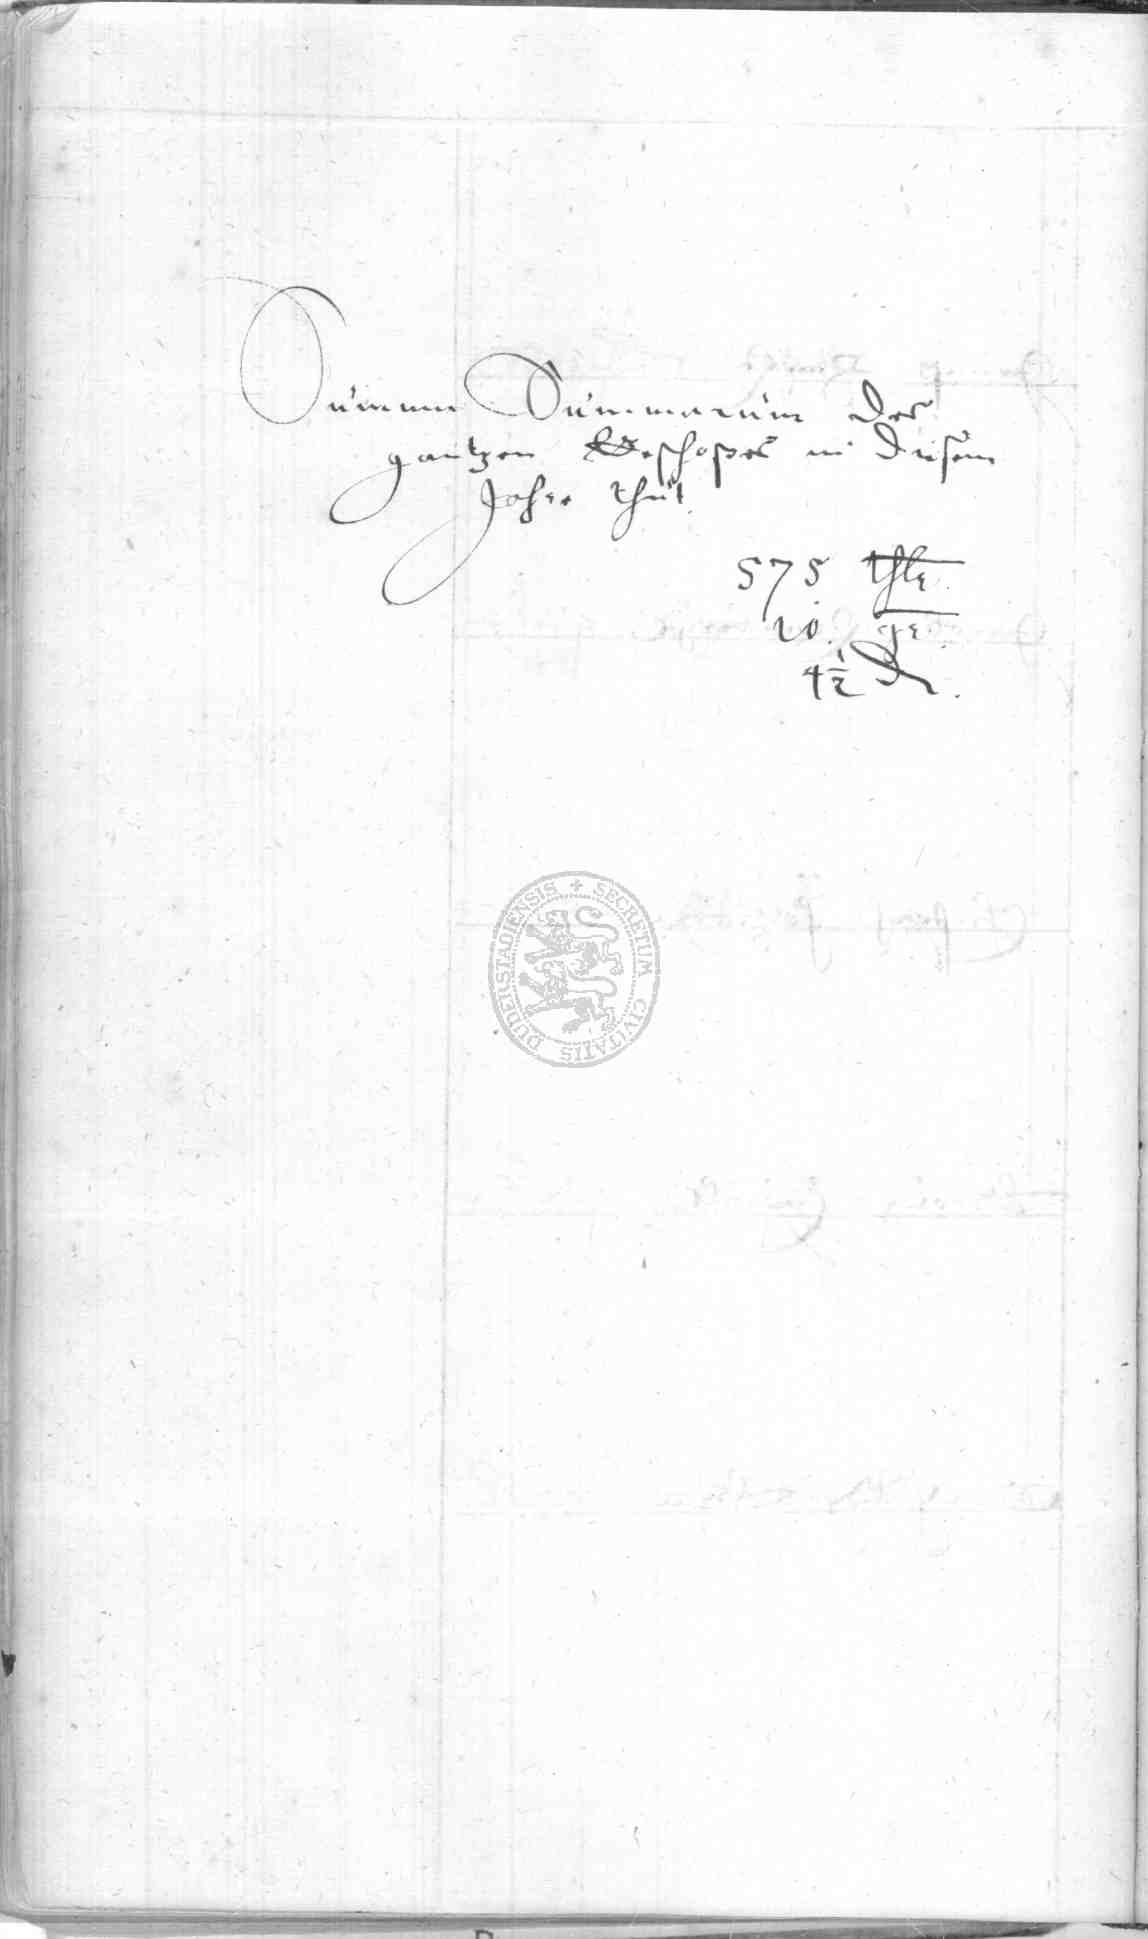 Summa Summarum des
gantzen Geschoßes in diesem
Jahre thut
575 thlr
10 gr
4½ ₰.
SECRETUM CIVITATIS DUDERSTADIENSIS +